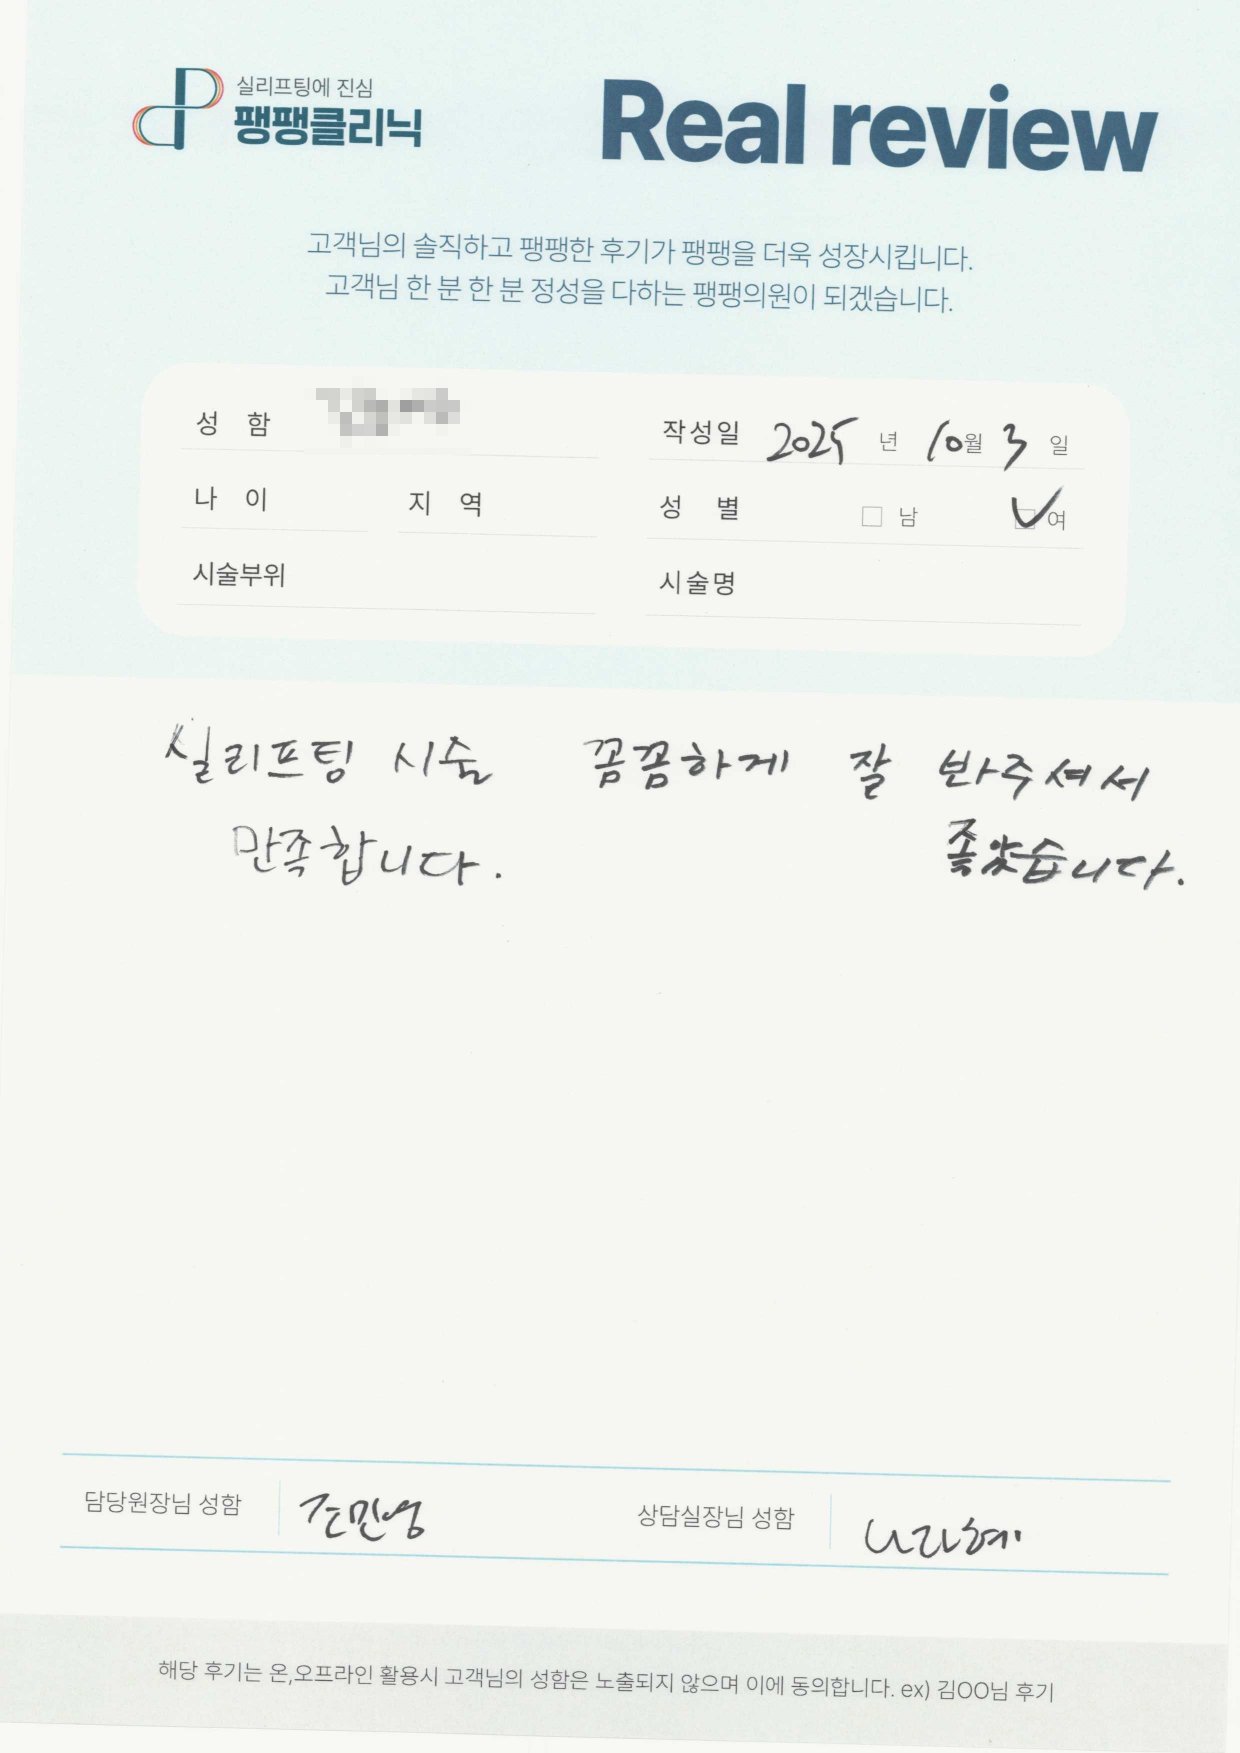 실리프팅에 진심
팽팽클리닉
Real review
고객님의 솔직하고 팽팽한 후기가 팽팽을 더욱 성장시킵니다.
고객님 한 분 한 분 정성을 다하는 팽팽의원이 되겠습니다.
성 함 작성일 2025 년 10 월 3 일
나 이 지 역 성 별 남 여
시술부위 시술명
실리프팅 시술 꼼꼼하게 잘 봐주셔서
만족합니다. 좋았습니다.
담당원장님 성함 조민영 상담실장님 성함 나라혜
해당 후기는 온,오프라인 활용시 고객님의 성함은 노출되지 않으며 이에 동의합니다. ex) 김OO님 후기